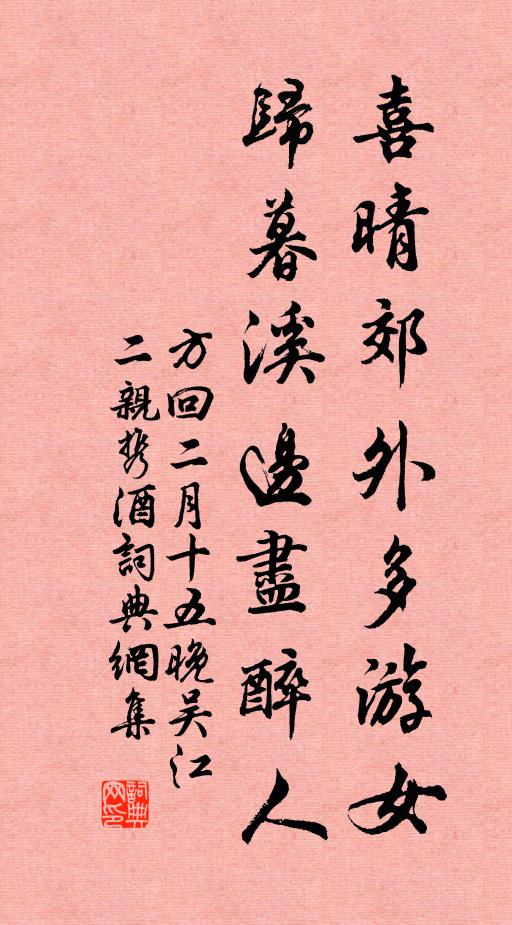 喜晴郊外多游女
歸暮溪邊盡醉人
方回二月十五晚吴江
二親携酒詞典網集
詞典网印